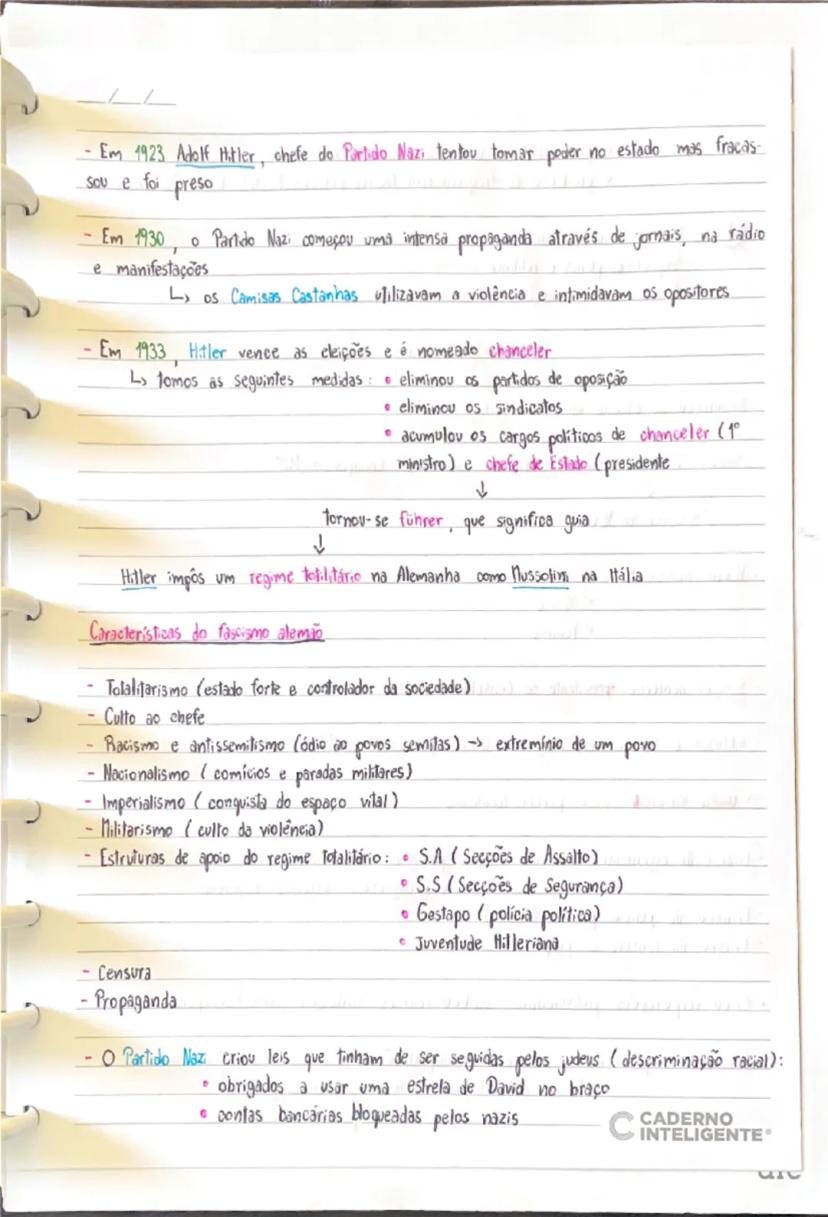 __/__/__
- Em 1923 Adolf Hitler, chefe do Partido Nazi tentou tomar poder no estado mas fracas-
sou e foi preso
- Em 1930, o Partido Nazi começou uma intensa propaganda através de jornais, na rádio
e manifestações
↳ os Camisas Castanhas utilizavam a violência e intimidavam os opositores
- Em 1933, Hitler vence as eleições e é nomeado chanceler
↳ tomos as seguintes medidas: • eliminou os partidos de oposição
• eliminou os sindicatos
• acumulou os cargos políticos de chanceler (1º
ministro) e chefe de Estado (presidente
↓
tornou-se führer, que significa guia
↓
Hitler impôs um regime totilitário na Alemanha como Mussolini na Itália
Características do fascismo alemão
- Totalitarismo (estado forte e controlador da sociedade)
- Culto ao chefe
- Racismo e antissemitismo (ódio ao povos semitas) → extremínio de um povo
- Nacionalismo (comícios e paradas militares)
- Imperialismo (conquista do espaço vital)
- Militarismo (culto da violência)
- Estruturas de apoio do regime totalitário: • S.A (Secções de Assalto)
• S.S (Secções de Segurança)
• Gestapo (polícia política)
• Juventude Hitleriana
- Censura
- Propaganda
- O Partido Nazi criou leis que tinham de ser seguidas pelos judeus (descriminação racial):
• obrigados a usar uma estrela de David no braço
• contas bancárias bloqueadas pelos nazis
CADERNO
INTELIGENTE®